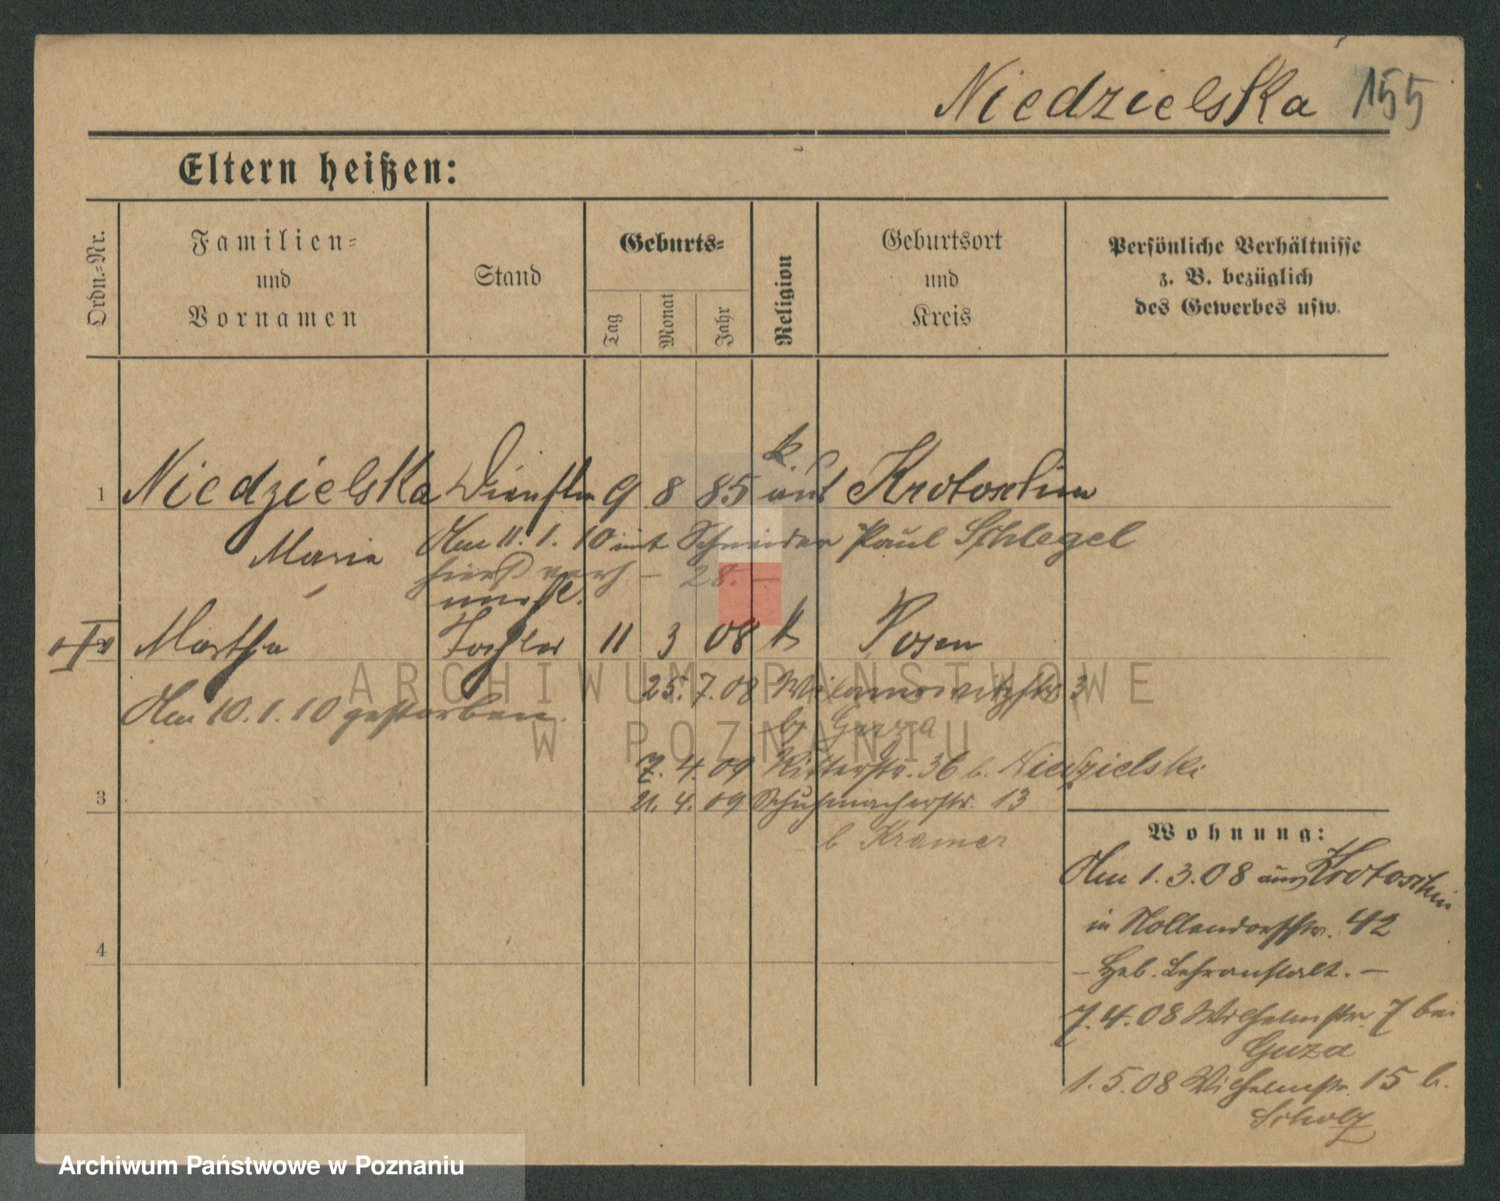 Niedzielska 155
Eltern heißen:
Ordn.-Nr.
Familien-
und
Vornamen
Stand
Geburts-
Tag
Monat
Jahr
Religion
Geburtsort
und
Kreis
Persönliche Verhältnisse
z. B. bezüglich
des Gewerbes usw.
1 Niedzielska 9 8 85 k Krotoschin
Maria
Am 11. 1. 10 mit Schneider Paul Schlegel
hier verh. — 28. —
unehel.
Martha Tochter 11 3 08 k Posen
Am 10. 1. 10 gestorben.
25. 7. 08 3
b. Guza
7. 4. 09 Ritterstr. 36 b. Niedzielski
3
21. 4. 09 Schuhmacherstr. 13
b Kramer
4
Wohnung:
Am 1. 3. 08 aus Krotoschin
in Nollendorfstr. 42
— Heb. Lehranstalt. —
7. 4. 08 Wilhelmstr. 7 bei
Guza
1. 5. 08 Wilhelmstr. 15 b.
Scholz
ARCHIWUM PAŃSTWOWE
W POZNANIU
Archiwum Państwowe w Poznaniu